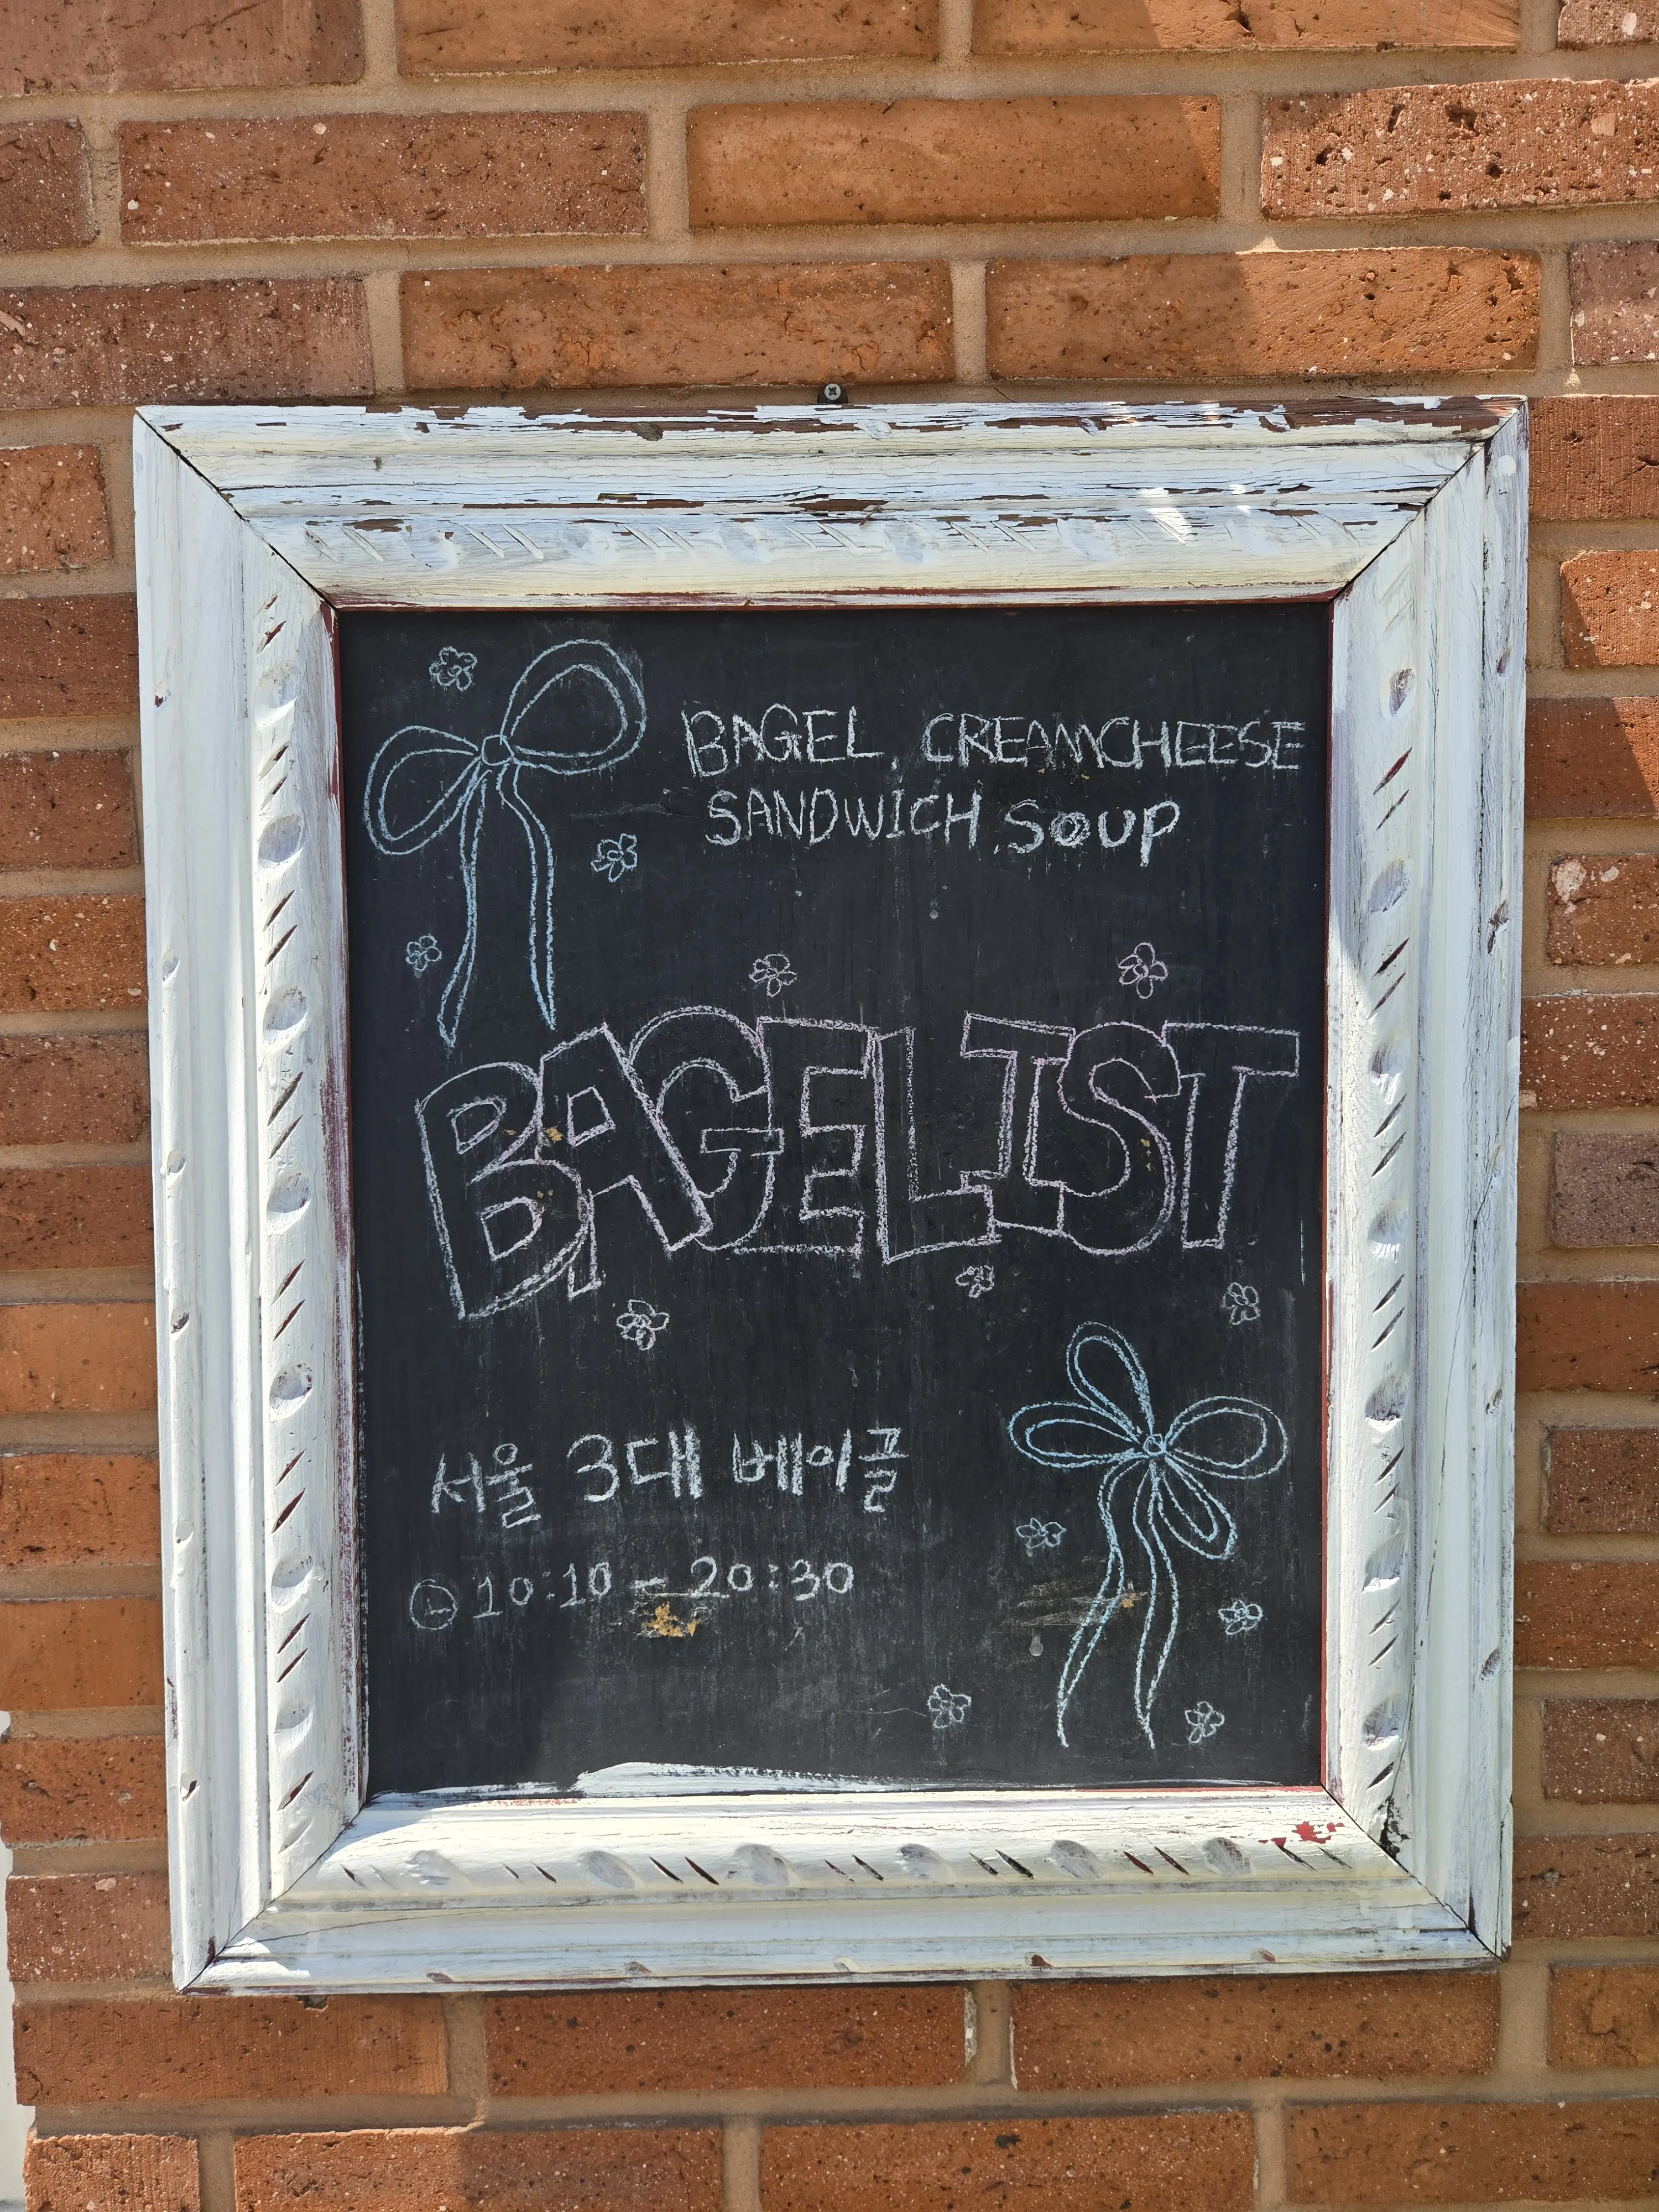 BAGEL, CREAMCHEESE
SANDWICH, SOUP
BAGELIST
서울 3대 베이글
10:10 - 20:30